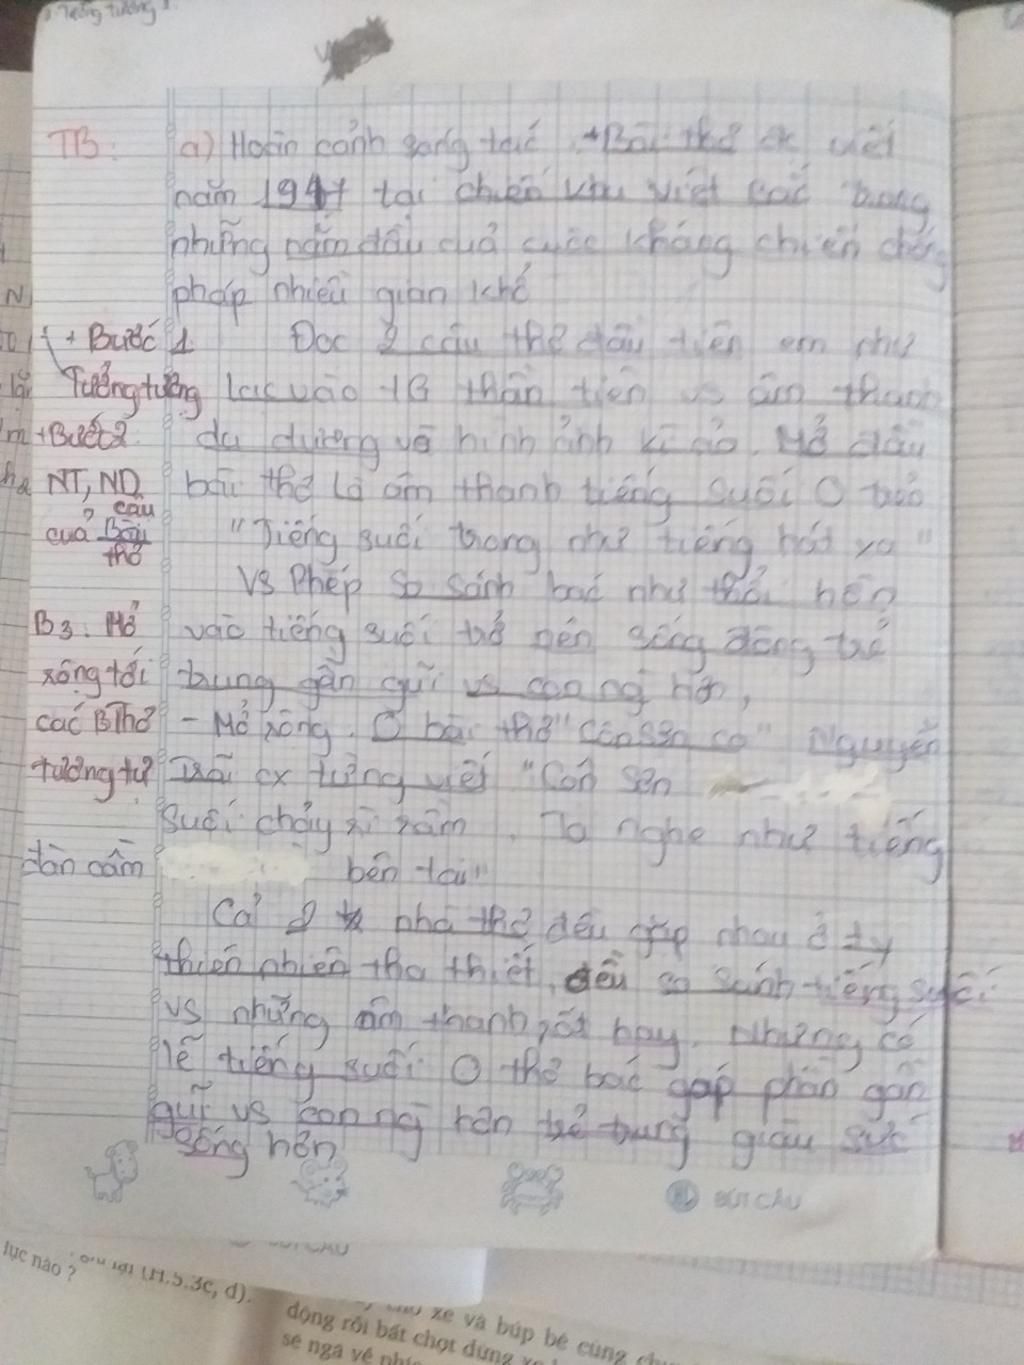 TB: a) Hoàn cảnh sáng tác + Bài thơ đk viết
năm 1947 tại chiến khu việt bắc trong
những năm đầu của cuộc kháng chiến chống
pháp nhiều gian khổ
+ Bước 1 Đọc 2 câu thơ đầu tiên em như
Tưởng tượng lạc vào TG thần tiên vs âm thanh
+ Bước 2 du dương và hình ảnh kì ảo. Mở đầu
NT, ND bài thơ là âm thanh tiếng suối
câu
của Bài "Tiếng suối trong như tiếng hát xa"
thơ
Vs Phép so sánh bác như thổi hồn
B3: Mở vào tiếng suối trở nên sống động trẻ
rộng tới trung gần gũi vs con ng hơn,
các BThơ - Mở rộng. Ở bài thơ "Côn sơn ca" Nguyễn
tương tự Trãi cx từng viết "Côn Sơn
suối chảy rì rầm. Ta nghe như tiếng
đàn cầm bên tai"
Cả 2 nhà thơ đều gặp nhau ở ty
thiên nhiên tha thiết, đều so sánh tiếng suối
vs những âm thanh rất hay. Nhưng có
lẽ tiếng suối thơ bác góp phần gần
gũi vs con ng hơn trẻ trung giàu sức
sống hơn
BÚT CHU
lục nào ?
(H.5.3c, d).
xe và búp bê cùng
động rồi bất chợt dừng xe
sẽ ngã về